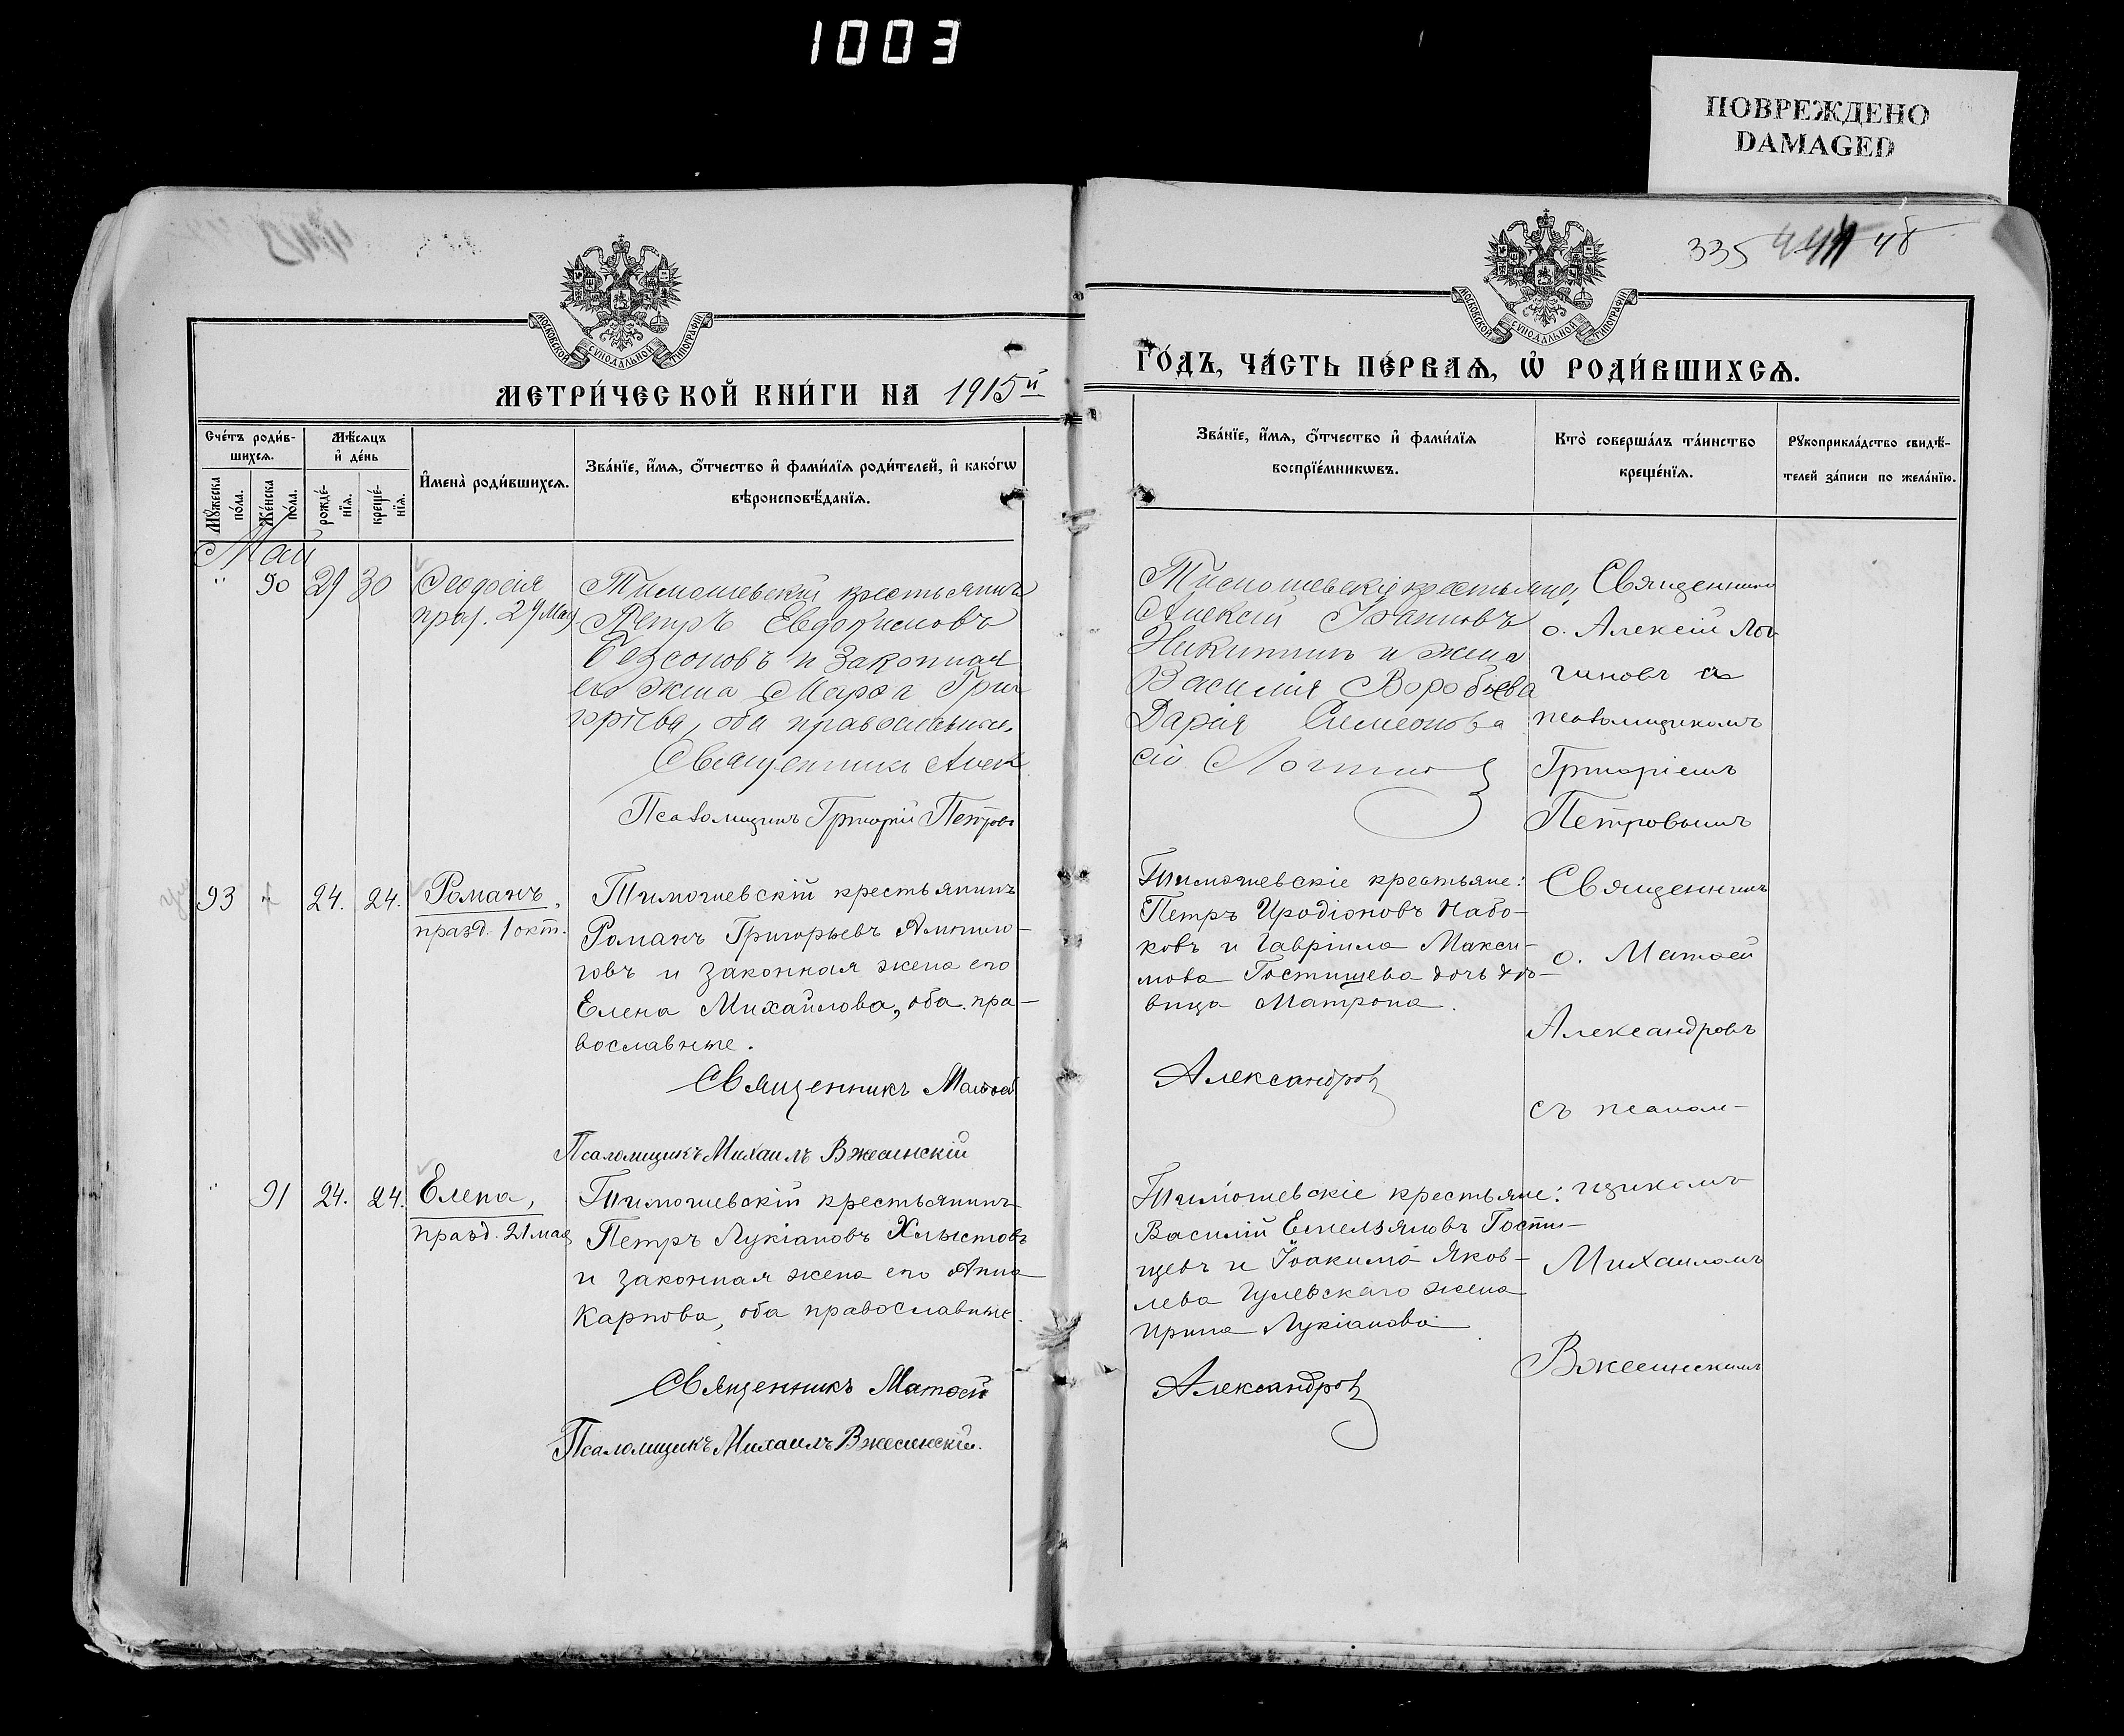 1003
ПОВРЕЖДЕНО
DAMAGED
335 48
МОСКОВСКОЙ СѴНОДАЛЬНОЙ ТИПОГРАФІИ
МОСКОВСКОЙ СѴНОДАЛЬНОЙ ТИПОГРАФІИ
МЕТРИ́ЧЕСКОЙ КНИ́ГИ НА 1915й
ГО́ДЪ, ЧА́СТЬ ПЕ́РВАЯ, Ѡ РОДИ́ВШИХСЯ.
Сче́тъ роди́в-
шихся.
Мѣ́сяцъ
и де́нь
Му́жеска
по́ла.
Же́нска
по́ла.
рожде́-
нїя.
креще́-
нїя.
Имена̀ роди́вшихся.
Зва́нїе, и́мя, о́тчество и фами́лїя роди́телей, и како́гѡ
вѣроисповѣ́данїя.
Зва́нїе, и́мя, о́тчество и фами́лїя
воспрїе́мникѡвъ.
Кто̀ соверша́лъ та́инство
креще́нїя.
Рукоприкла́дство свидѣ́-
телей за́писи по жела́нїю.
Май
" 90 29 30 Ѳеодосія
праз. 29 Мая
Тимошевскій крестьянинъ
Петръ Евдокимовъ
Безсоновъ и законная
его жена Марѳа Гри
горіева, оба православные
Священникъ Алек
Псаломщикъ Григорій Петровъ
Тимошевскіе крестьяне
Алексій Іоанновъ
Никитинъ и жена
Василія Воробьева
Дарія Симеонова
сій Логинов
Священникъ
о. Алексій Лог
гиновъ съ
псаломщикомъ
Григоріемъ
Петровымъ
93 " 24. 24. Романъ,
празд. 1 окт.
Тимошевскій крестьянинъ
Романъ Григорьевъ
говъ и законная жена его
Елена Михайлова, оба пра-
вославные.
Священникъ Матѳей
Псаломщикъ Михаилъ Вжесинскій
Тимошевскіе крестьяне:
Петръ Иродіоновъ Набо-
ковъ и Гавріила Макси-
мова Гостищева дочь дѣ-
вица Матрона.
Александров
Священникъ
о. Матѳей
Александровъ
съ псалом-
щикомъ
Михаиломъ
Вжесинскимъ
" 91 24. 24. Елена,
празд. 21 мая
Тимошевскій крестьянинъ
Петръ Лукіановъ Хлыстовъ
и законная жена его Анна
Карпова, оба православные.
Священникъ Матѳей
Псаломщикъ Михаилъ Вжесинскій.
Тимошевскіе крестьяне:
Василій Емельяновъ Гости-
щевъ и Іоакима Яков-
лева Гулевскаго жена
Ирина Лукіанова
Александров